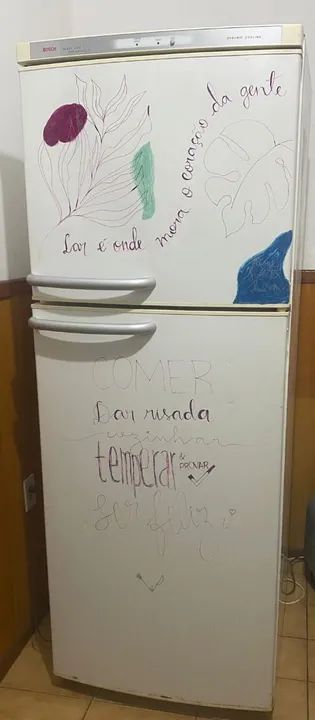 BOSCH
Lar é onde mora o coração da gente
COMER
Dar risada
cozinhar
temperar & PROVAR
Ser feliz